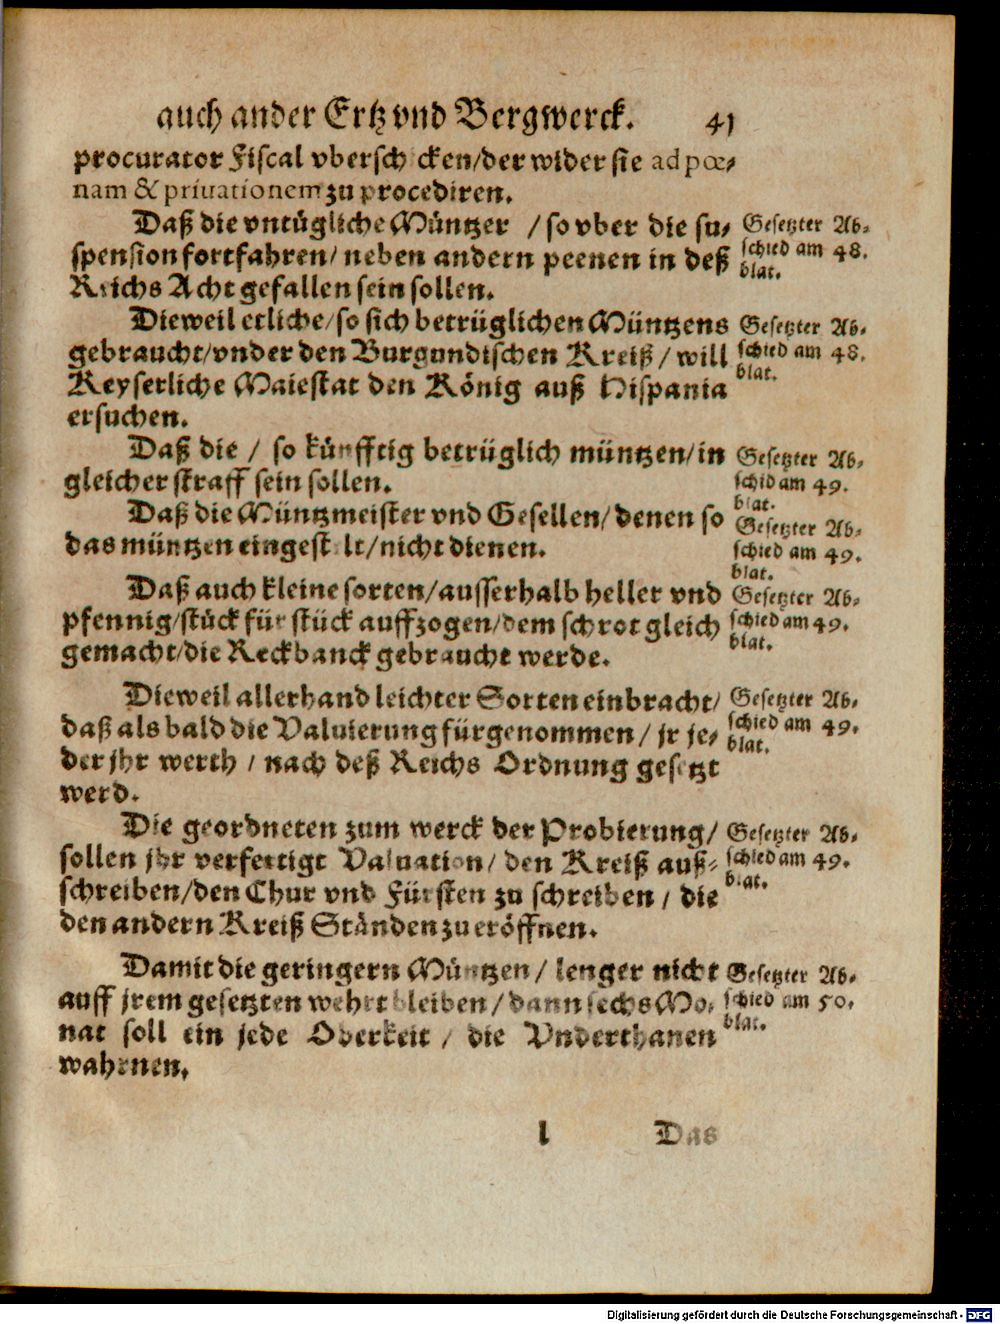 auch ander Ertz vnd Bergwerck. 41
procurator Fiscal vberschicken/der wider sie ad pœ-
nam & priuationem zu procediren.
Daß die vntügliche Müntzer / so vber die su-
spension fortfahren/ neben andern peenen in deß
Reichs Acht gefallen sein sollen.
Gesetzter Ab-
schied am 48.
blat.
Dieweil etliche/so sich betrüglichen Müntzens
gebraucht/vnder den Burgundischen Kreiß/ will
Keyserliche Maiestat den König auß Hispania
ersuchen.
Gesetzter Ab-
schied am 48.
blat.
Daß die / so künfftig betrüglich müntzen/in
gleicher straff sein sollen.
Gesetzter Ab-
schid am 49.
blat.
Daß die Müntzmeister vnd Gesellen/ denen so
das müntzen eingestelt/nicht dienen.
Gesetzter Ab-
schied am 49.
blat.
Daß auch kleine sorten/ausserhalb heller vnd
pfennig/stück für stück auffzogen/dem schrot gleich
gemacht/die Reckbanck gebraucht werde.
Gesetzter Ab-
schied am 49.
blat.
Dieweil allerhand leichter Sorten einbracht/
daß als bald die Valuierung fürgenommen/ jr je-
der jhr werth / nach deß Reichs Ordnung gesetzt
werd.
Gesetzter Ab-
schied am 49.
blat.
Die geordneten zum werck der Probierung/
sollen jhr verfertigt Valuation/ den Kreiß auß-
schreiben/den Chur vnd Fürsten zu schreiben / die
den andern Kreiß Ständen zu eröffnen.
Gesetzter Ab-
schied am 49.
blat.
Damit die geringern Müntzen/ lenger nicht
auff jrem gesetzten wehrt bleiben/ dann sechs Mo-
nat soll ein jede Oberkeit / die Vnderthanen
wahrnen.
Gesetzter Ab-
schied am 50.
blat.
l Das
Digitalisierung gefördert durch die Deutsche Forschungsgemeinschaft - DFG